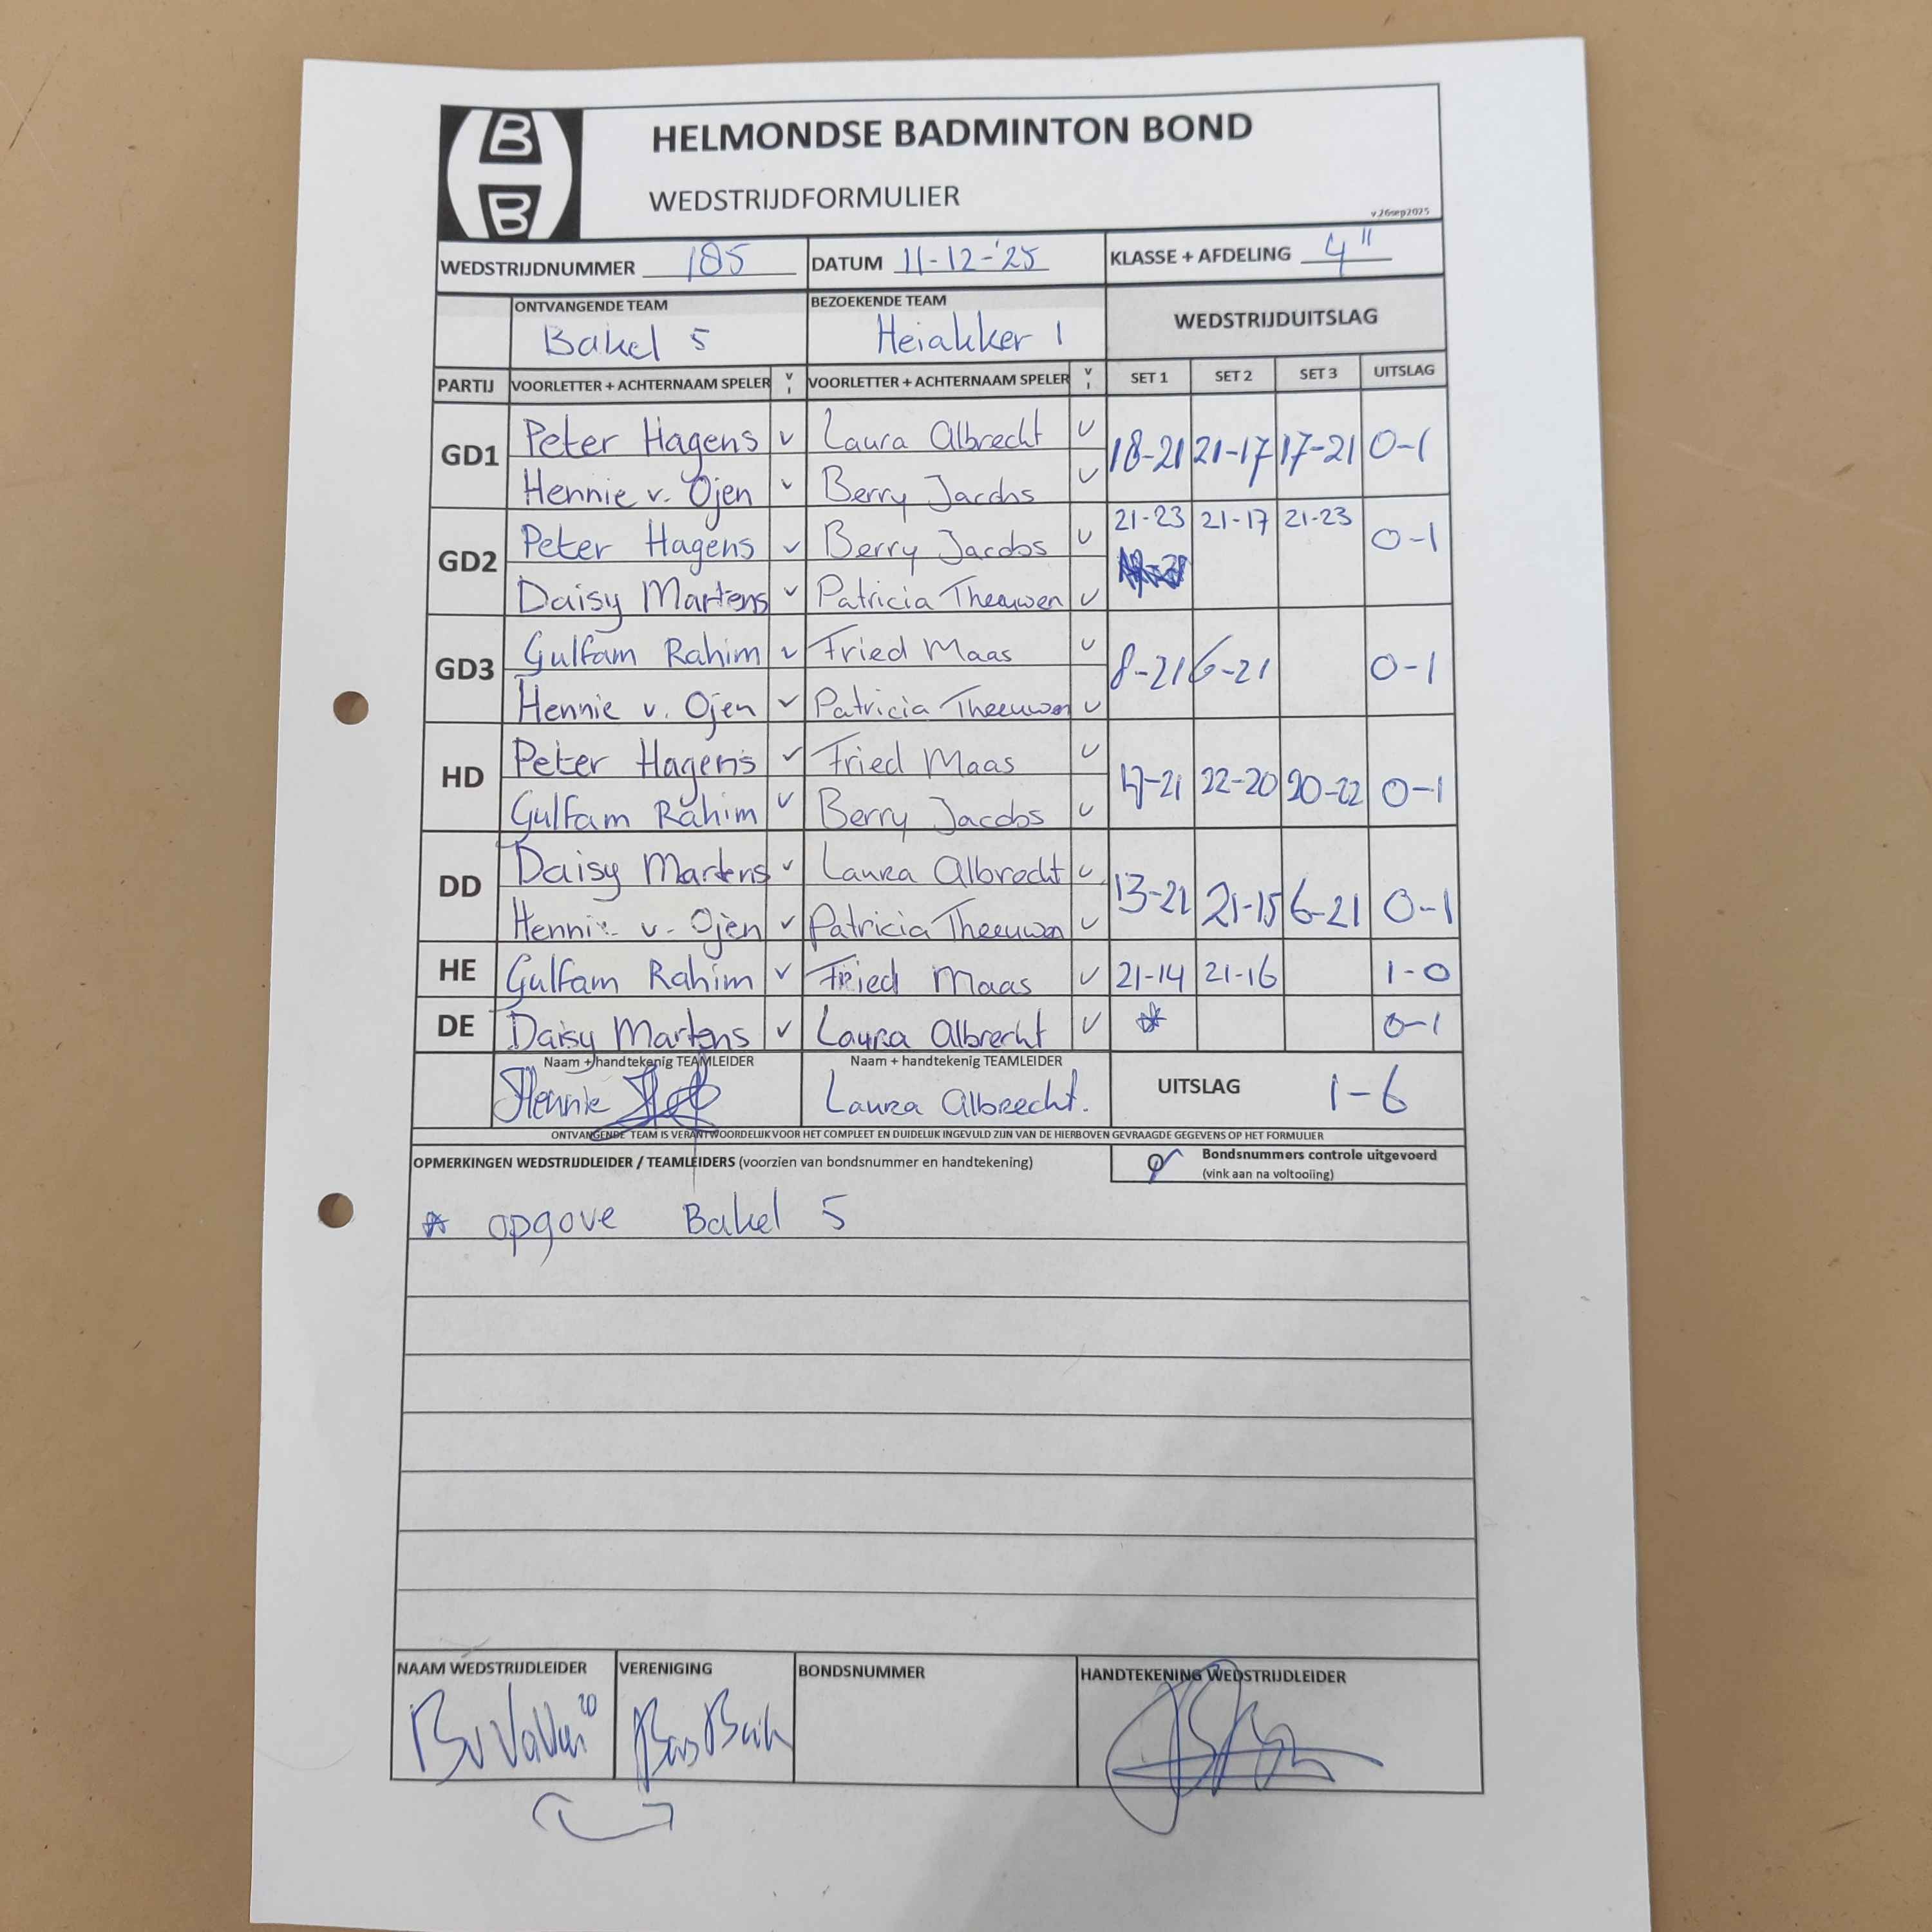 B
B
HELMONDSE BADMINTON BOND
WEDSTRIJDFORMULIER
v.26sep2025
WEDSTRIJDNUMMER 185 DATUM 11-12-'25 KLASSE + AFDELING 4"
ONTVANGENDE TEAM BEZOEKENDE TEAM WEDSTRIJDUITSLAG
Bakel 5 Heiakker 1
PARTIJ VOORLETTER + ACHTERNAAM SPELER V VOORLETTER + ACHTERNAAM SPELER V SET 1 SET 2 SET 3 UITSLAG
GD1 Peter Hagens v Laura Albrecht v 18-21 21-17 17-21 0-1
Hennie v. Ojen v Berry Jacobs v
GD2 Peter Hagens v Berry Jacobs v 21-23 21-17 21-23 0-1
Daisy Martens v Patricia Theeuwen v
GD3 Gulfam Rahim v Fried Maas v 8-21 6-21 0-1
Hennie v. Ojen v Patricia Theeuwen v
HD Peter Hagens v Fried Maas v 17-21 22-20 20-22 0-1
Gulfam Rahim v Berry Jacobs v
DD Daisy Martens v Laura Albrecht v 13-21 21-15 6-21 0-1
Hennie v. Ojen v Patricia Theeuwen v
HE Gulfam Rahim v Fried Maas v 21-14 21-16 1-0
DE Daisy Martens v Laura Albrecht v * 0-1
Naam + handtekenig TEAMLEIDER Naam + handtekenig TEAMLEIDER
Hennie Laura Albrecht. UITSLAG 1-6
ONTVANGENDE TEAM IS VERANTWOORDELIJK VOOR HET COMPLEET EN DUIDELIJK INGEVULD ZIJN VAN DE HIERBOVEN GEVRAAGDE GEGEVENS OP HET FORMULIER
OPMERKINGEN WEDSTRIJDLEIDER / TEAMLEIDERS (voorzien van bondsnummer en handtekening) Bondsnummers controle uitgevoerd
(vink aan na voltooiing)
* opgave Bakel 5
NAAM WEDSTRIJDLEIDER VERENIGING BONDSNUMMER HANDTEKENING WEDSTRIJDLEIDER